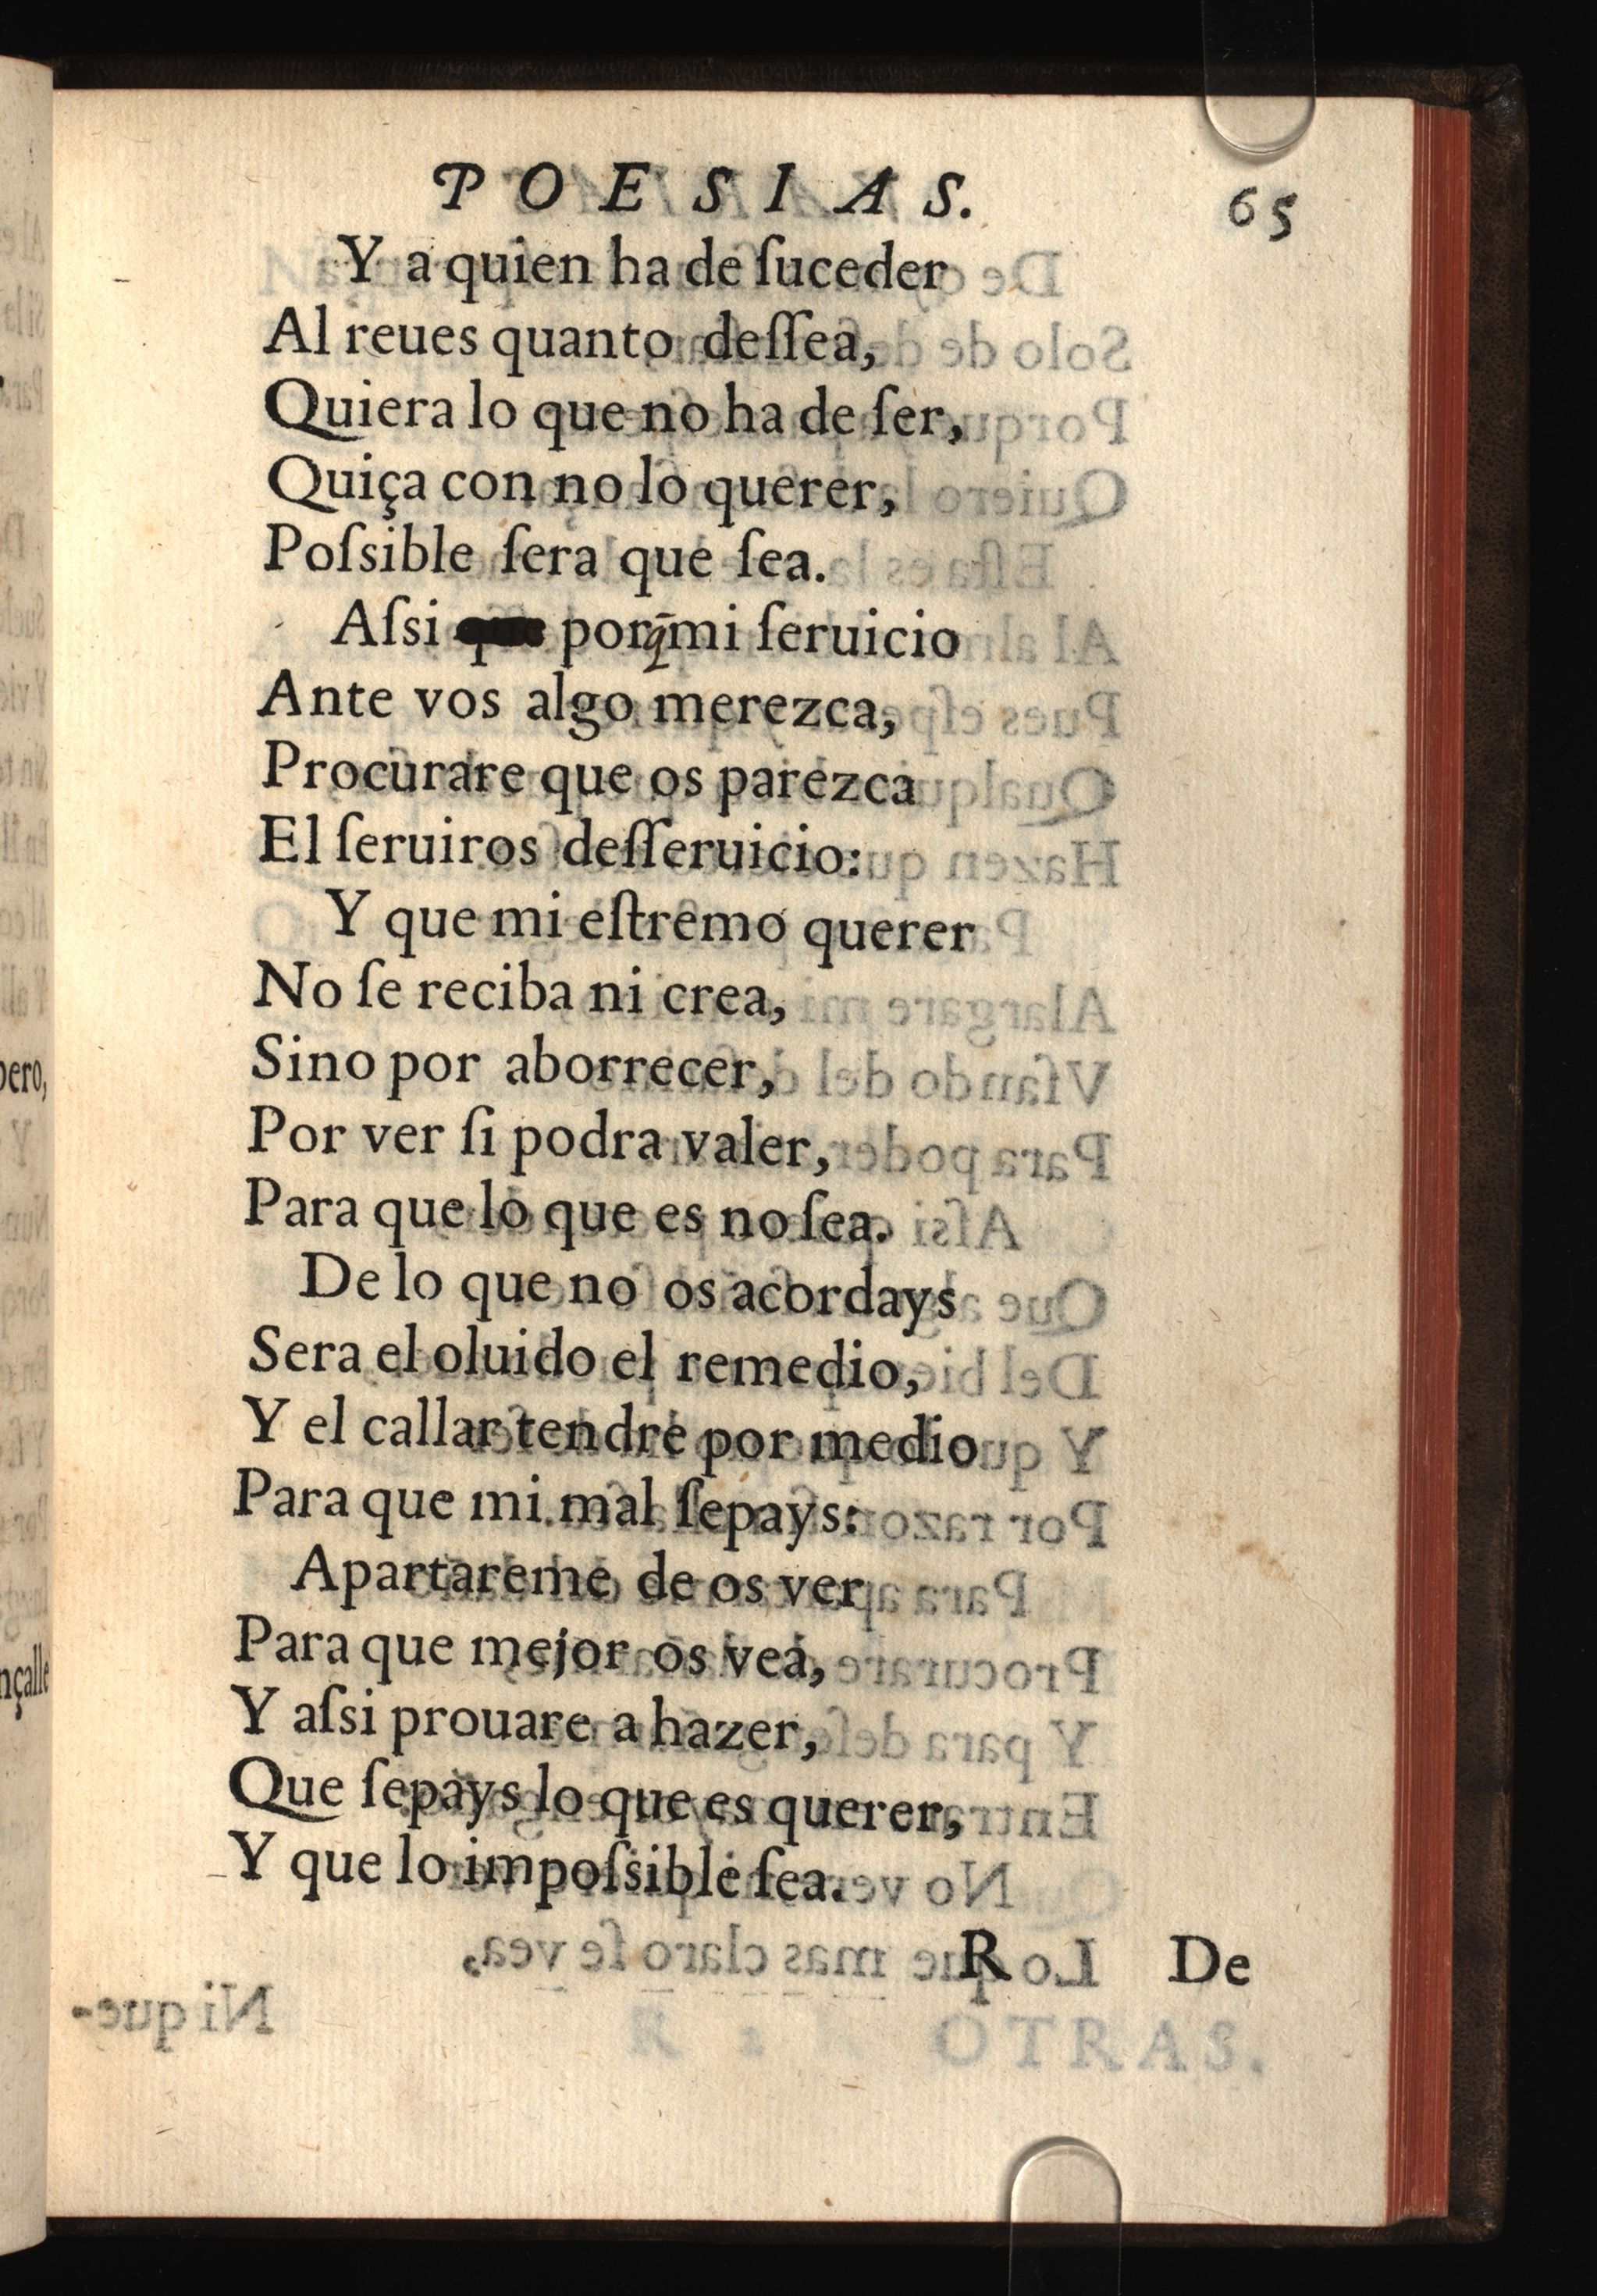 POESIAS. 65
Y a quien ha de ſuceder
Al reues quanto deſſea,
Quiera lo que no ha de ſer,
Quiça con no lo querer,
Poſsible ſera que ſea.
Aſsi que porq̃ mi ſeruicio
Ante vos algo merezca,
Procurare que os parezca
El ſeruiros deſſeruicio:
Y que mi eſtremo querer
No ſe reciba ni crea,
Sino por aborrecer,
Por ver ſi podra valer,
Para que lo que es no ſea.
De lo que no os acordays
Sera el oluido el remedio,
Y el callar tendre por medio
Para que mi mal ſepays:
Apartareme de os ver
Para que mejor os vea,
Y aſsi prouare a hazer,
Que ſepays lo que es querer,
Y que lo impoſsible ſea.
R De